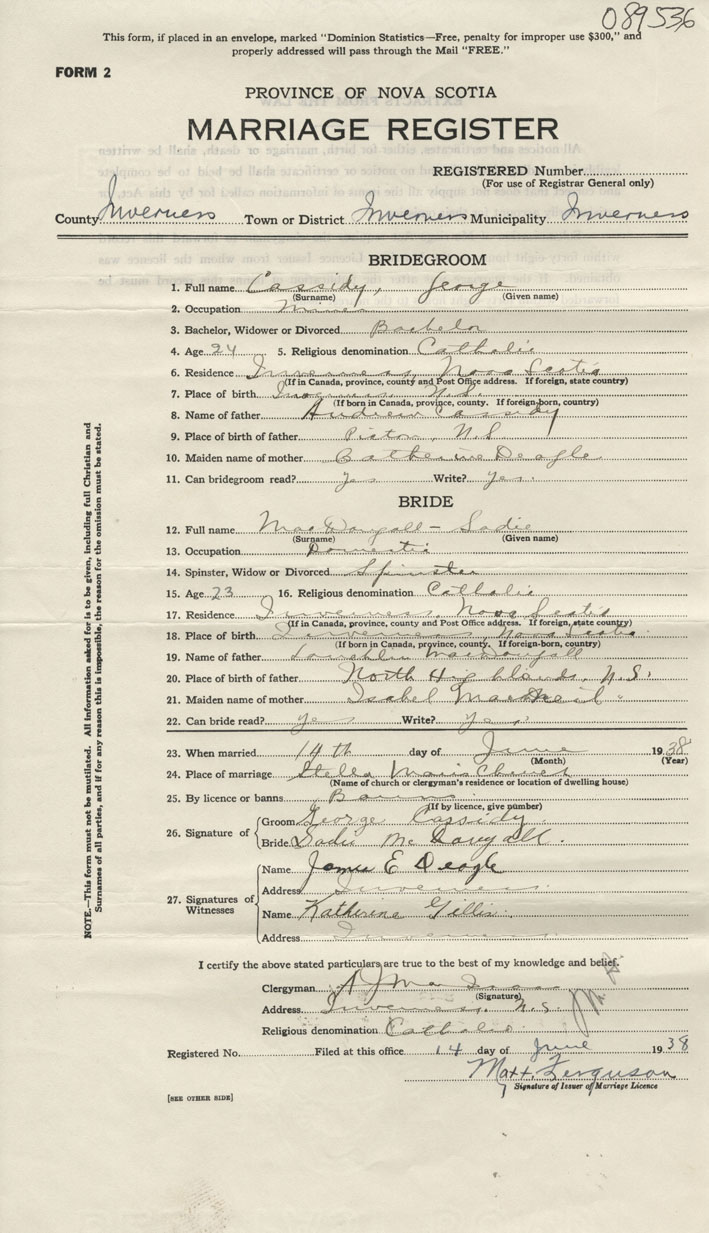 089536
This form, if placed in an envelope, marked "Dominion Statistics—Free, penalty for improper use $300," and
properly addressed will pass through the Mail "FREE."
FORM 2
PROVINCE OF NOVA SCOTIA
MARRIAGE REGISTER
REGISTERED Number
(For use of Registrar General only)
County Inverness Town or District Inverness Municipality Inverness
BRIDEGROOM
1. Full name Cassidy, George
(Surname) (Given name)
2. Occupation Miner
3. Bachelor, Widower or Divorced Bachelor
4. Age 24 5. Religious denomination Catholic
6. Residence Inverness, Nova Scotia
(If in Canada, province, county and Post Office address. If foreign, state country)
7. Place of birth N.S.
(If born in Canada, province, county. If foreign-born, country)
8. Name of father Andrew Cassidy
9. Place of birth of father Pictou, N.S.
10. Maiden name of mother Catherine Deagle
11. Can bridegroom read? Yes Write? Yes.
BRIDE
12. Full name MacDougall - Sadie
(Surname) (Given name)
13. Occupation Domestic
14. Spinster, Widow or Divorced Spinster
15. Age 23 16. Religious denomination Catholic
17. Residence Inverness, Nova Scotia
(If in Canada, province, county and Post Office address. If foreign, state country)
18. Place of birth Inverness, Nova Scotia
(If born in Canada, province, county. If foreign-born, country)
19. Name of father Lauchlin MacDougall
20. Place of birth of father North Highlands, N.S.
21. Maiden name of mother Isabel MacNeil
22. Can bride read? Yes Write? Yes.
23. When married 14th day of June 1938
(Month) (Year)
24. Place of marriage Stella Maris Church
(Name of church or clergyman's residence or location of dwelling house)
25. By licence or banns Banns
(If by licence, give number)
26. Signature of Groom George Cassidy
Bride Sadie McDougall.
27. Signatures of Witnesses
Name James E Deagle
Address Inverness
Name Katherine Gillis
Address Inverness
I certify the above stated particulars are true to the best of my knowledge and belief.
Clergyman A J Mac Isaac
(Signature)
Address Inverness, N.S.
Religious denomination Catholic
Registered No. Filed at this office 14 day of June 1938
Matt. Ferguson
Signature of Issuer of Marriage Licence
[SEE OTHER SIDE]
NOTE.—This form must not be mutilated. All information asked for is to be given, including full Christian and
Surnames of all parties, and if for any reason this is impossible, the reason for the omission must be stated.